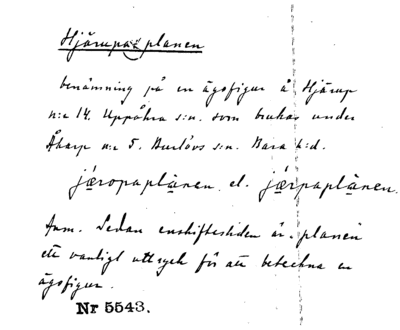 Hjärupaplanen
benämning på en ägofigur å Hjärup
n:r 14. Uppåkra s:n. som brukas under
Åkarp n:r 5. Burlövs s:n. Bara h:d.
jæropaplànen el. jærpaplànen.
Anm. Sedan enskiftestiden är -planen
ett vanligt uttryck för att beteckna en
ägofigur.
Nr 5543.